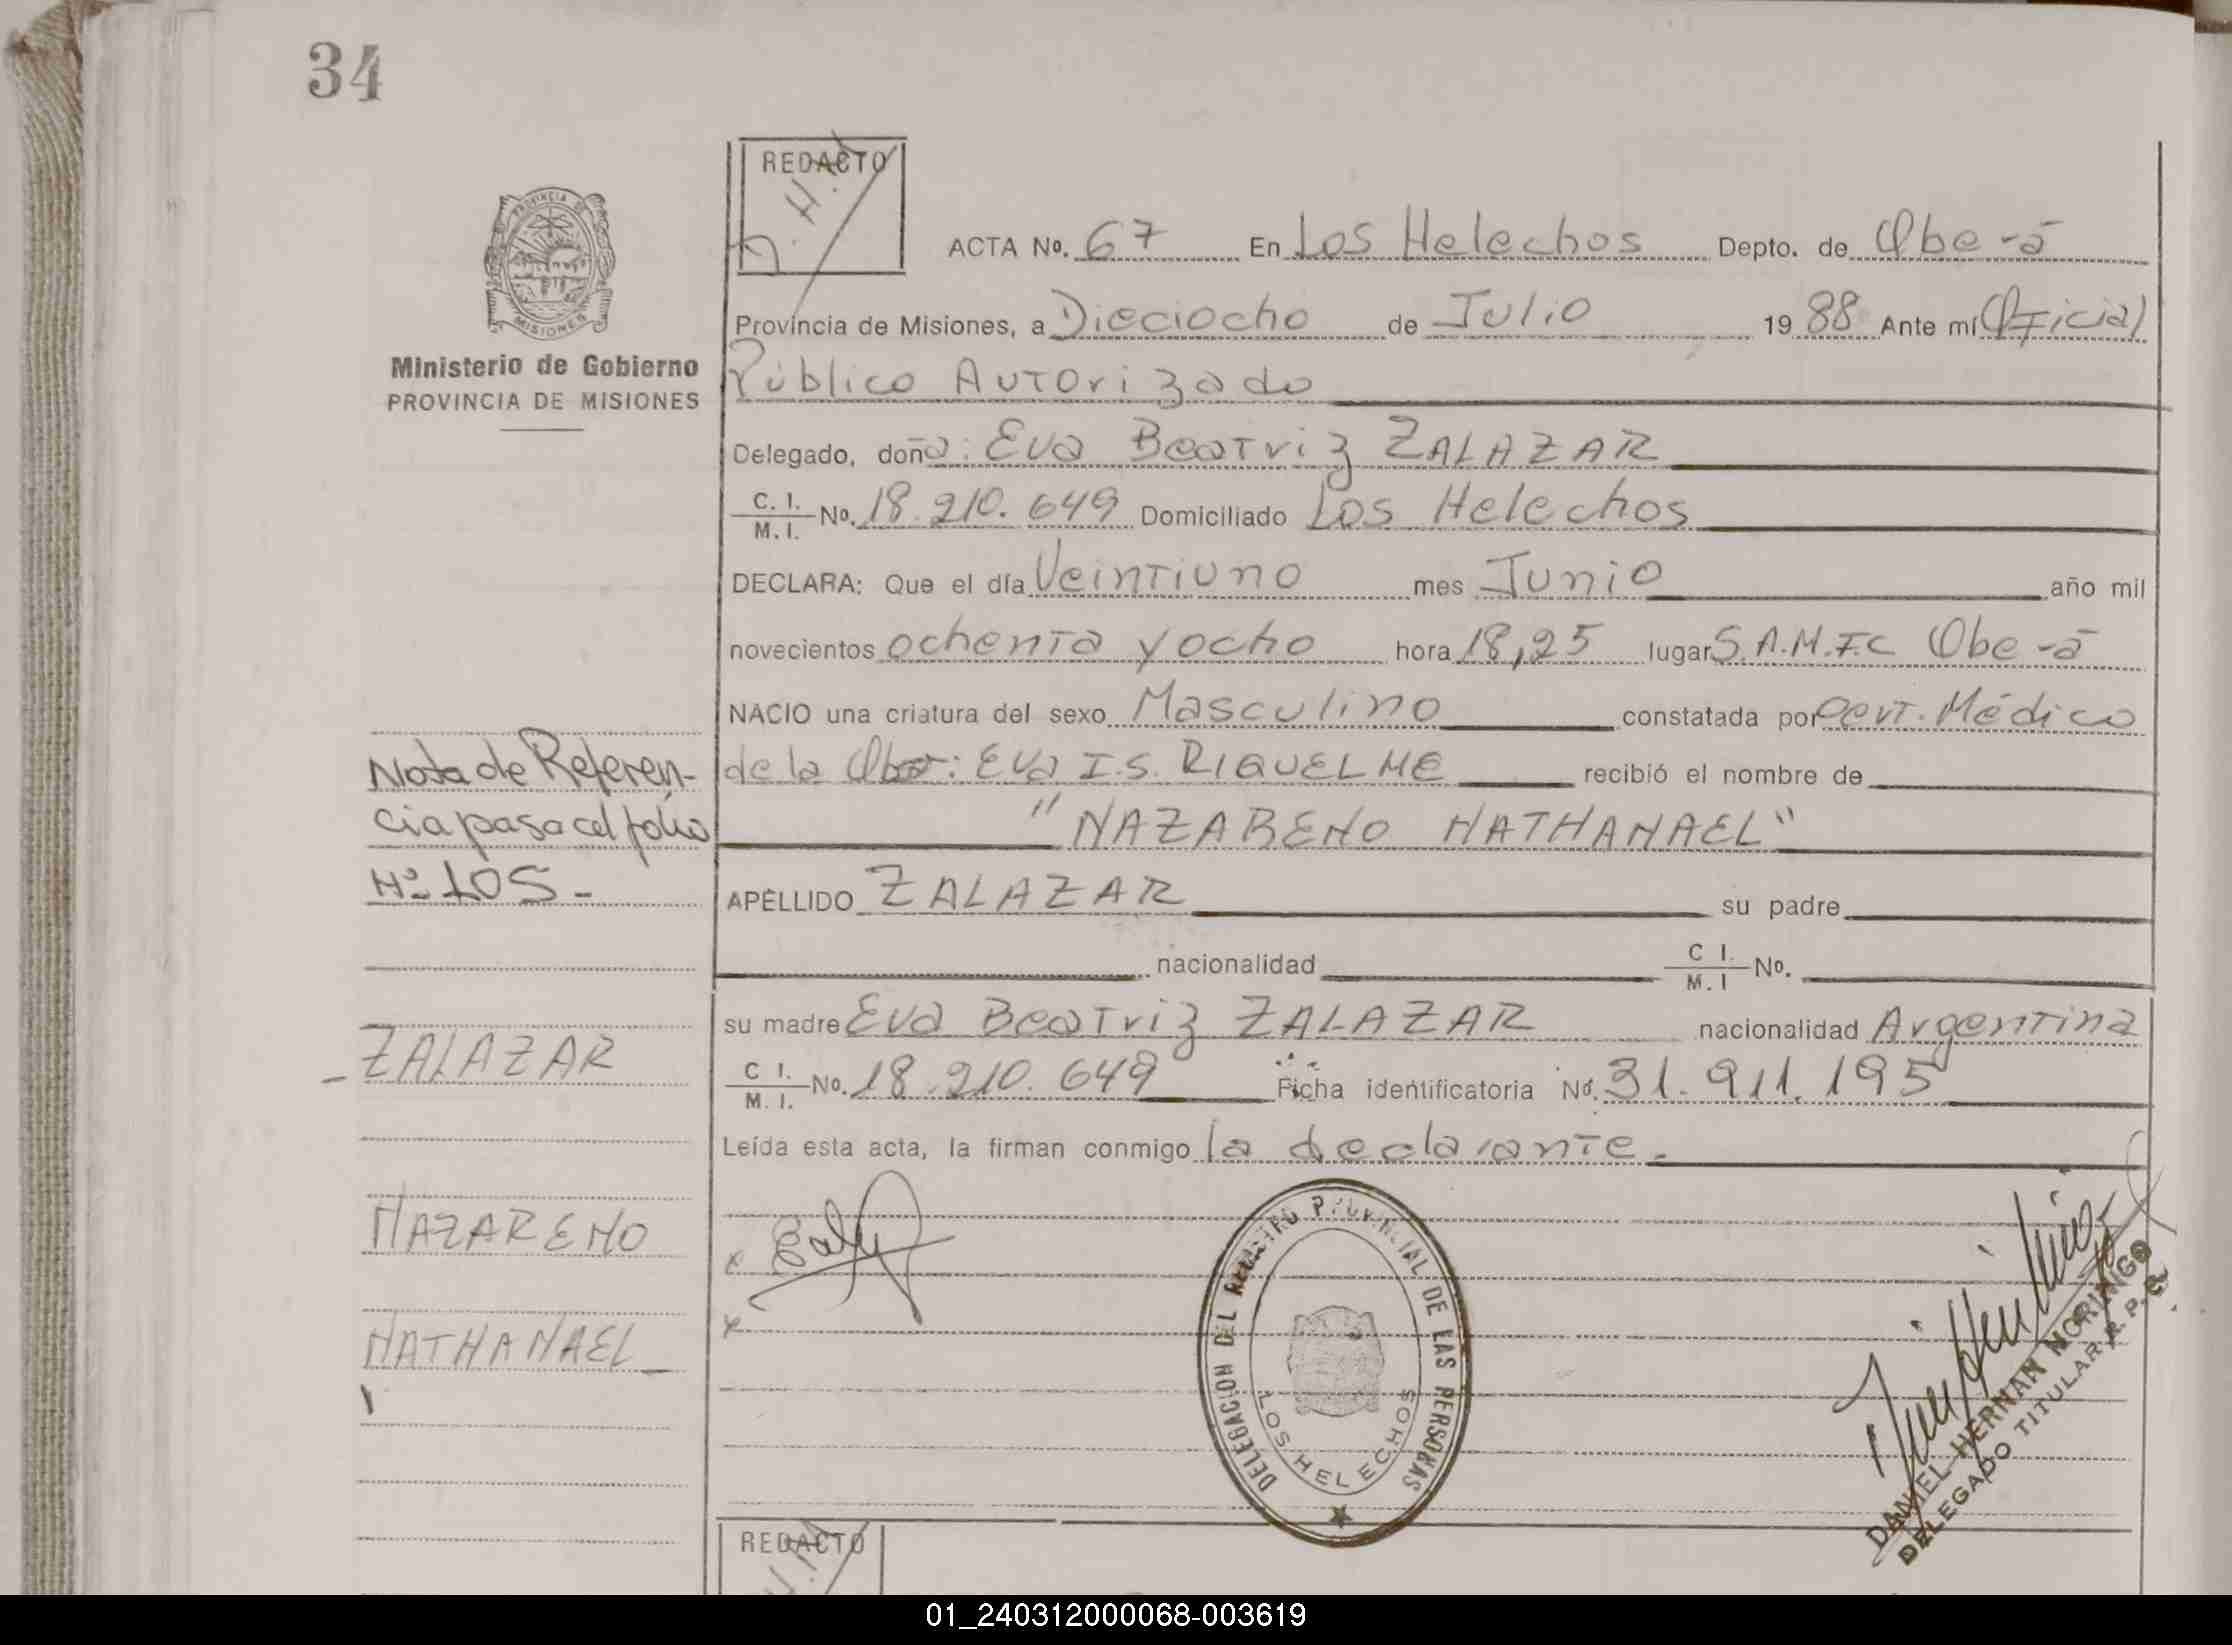 34
REDACTO
D. H. N
PROVINCIA DE
MISIONES
Ministerio de Gobierno
PROVINCIA DE MISIONES
ACTA No. 67 En Los Helechos Depto. de Obe-rá
Provincia de Misiones, a Dieciocho de Julio 1988 Ante mí Oficial
Público Autorizado
Delegado, doña: Eva Beatriz ZALAZAR
C. I. / M. I. No. 18.210.649 Domiciliado Los Helechos
DECLARA: Que el día Veintiuno mes Junio año mil
novecientos ochenta y ocho hora 18,25 lugar S.A.M.I.C Obe-rá
NACIO una criatura del sexo Masculino constatada por Cert. Médico
de la Obst: Eva I.S. RIQUELME recibió el nombre de
"NAZARENO NATHANAEL"
APELLIDO ZALAZAR su padre
nacionalidad C I. / M. I No.
su madre Eva Beatriz ZALAZAR nacionalidad Argentina
C I. / M. I. No. 18.210.649 Ficha identificatoria No. 31.911.195
Leída esta acta, la firman conmigo la declarante.
Nota de Referen-
cia pasa al folio
Nº 105-
-ZALAZAR
NAZARENO
NATHANAEL-
x
x
DELEGACION DEL REGISTRO PROVINCIAL DE LAS PERSONAS
LOS HELECHOS
DANIEL HERNAN MORINIGO
DELEGADO TITULAR R. P. P.
REDACTO
01_240312000068-003619